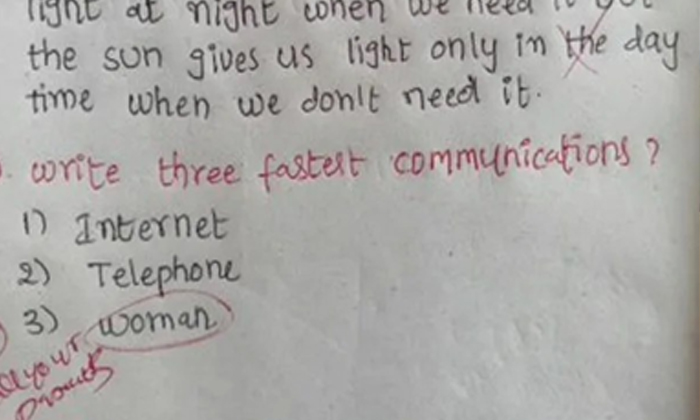 light at night when we need it
the sun gives us light only in the day
time when we don't need it.
write three fastest communications?
1) Internet
2) Telephone
3) woman
your